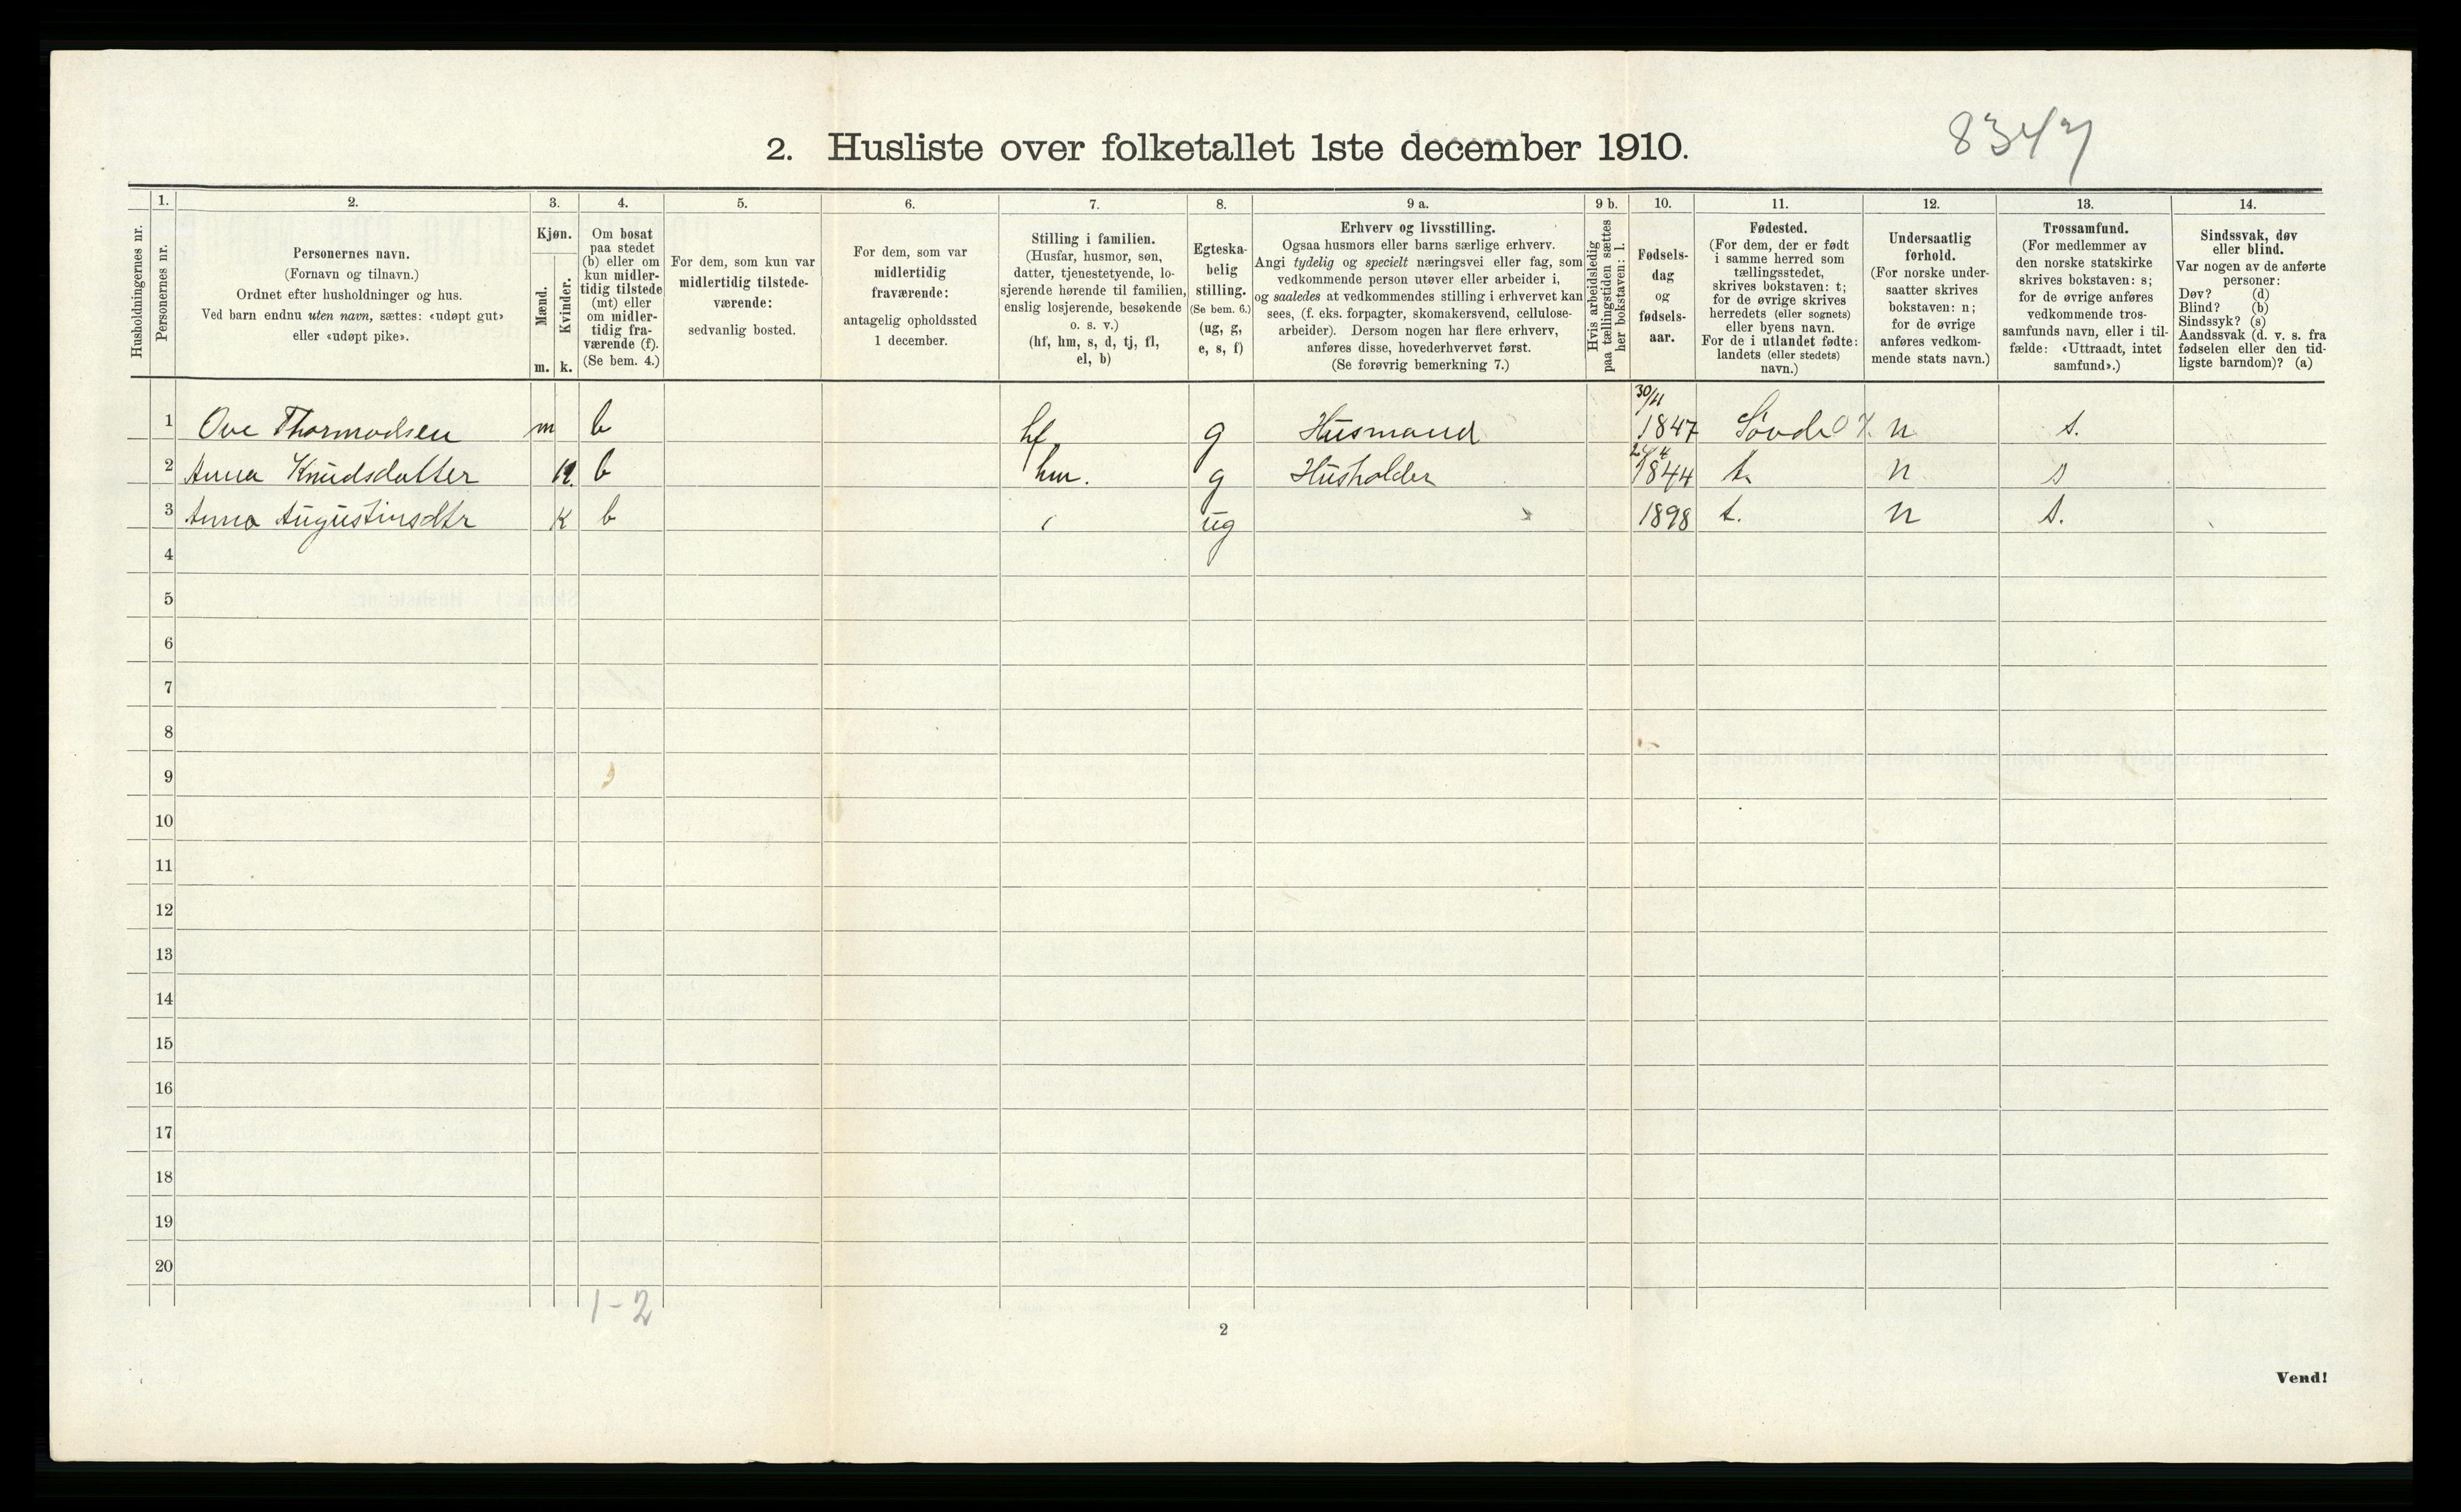 8347
2. Husliste over folketallet 1ste december 1910.
1. 2. 3. 4. 5. 6. 7. 8. 9 a. 9 b. 10. 11. 12. 13. 14.
Husholdningernes nr.
Personernes nr.
Personernes navn.
(Fornavn og tilnavn.)
Ordnet efter husholdninger og hus.
Ved barn endnu uten navn, sættes: «udøpt gut»
eller «udøpt pike».
Kjøn.
Mænd.
Kvinder.
m. k.
Om bosat
paa stedet
(b) eller om
kun midler-
tidig tilstede
(mt) eller
om midler-
tidig fra-
værende (f).
(Se bem. 4.)
For dem, som kun var
midlertidig tilstede-
værende:
sedvanlig bosted.
For dem, som var
midlertidig
fraværende:
antagelig opholdssted
1 december.
Stilling i familien.
(Husfar, husmor, søn,
datter, tjenestetyende, lo-
sjerende hørende til familien,
enslig losjerende, besøkende
o. s. v.)
(hf, hm, s, d, tj, fl,
el, b)
Egteska-
belig
stilling.
(Se bem. 6.)
(ug, g,
e, s, f)
Erhverv og livsstilling.
Ogsaa husmors eller barns særlige erhverv.
Angi tydelig og specielt næringsvei eller fag, som
vedkommende person utøver eller arbeider i,
og saaledes at vedkommendes stilling i erhvervet kan
sees, (f. eks. forpagter, skomakersvend, cellulose-
arbeider). Dersom nogen har flere erhverv,
anføres disse, hovederhvervet først.
(Se forøvrig bemerkning 7.)
Hvis arbeidsledig
paa tællingstiden sættes
her bokstaven: l.
Fødsels-
dag
og
fødsels-
aar.
Fødested.
(For dem, der er født
i samme herred som
tællingsstedet,
skrives bokstaven: t;
for de øvrige skrives
herredets (eller sognets)
eller byens navn.
For de i utlandet fødte:
landets (eller stedets)
navn.)
Undersaatlig
forhold.
(For norske under-
saatter skrives
bokstaven: n;
for de øvrige
anføres vedkom-
mende stats navn.)
Trossamfund.
(For medlemmer av
den norske statskirke
skrives bokstaven: s;
for de øvrige anføres
vedkommende tros-
samfunds navn, eller i til-
fælde: «Uttraadt, intet
samfund».)
Sindssvak, døv
eller blind.
Var nogen av de anførte
personer:
Døv? (d)
Blind? (b)
Sindssyk? (s)
Aandssvak (d. v. s. fra
fødselen eller den tid-
ligste barndom)? (a)
30/11
1 Ove Thormodsen m b hf g Husmand 1847 n s.
2 Anna Knudsdatter k. b hm. g Husholder 1844 t. n s
3 Anna Augustinsdtr k b ug 1898 t. n s.
4
5
6
7
8
9
10
11
12
13
14
15
16
17
18
19
20
1-2
2
Vend!